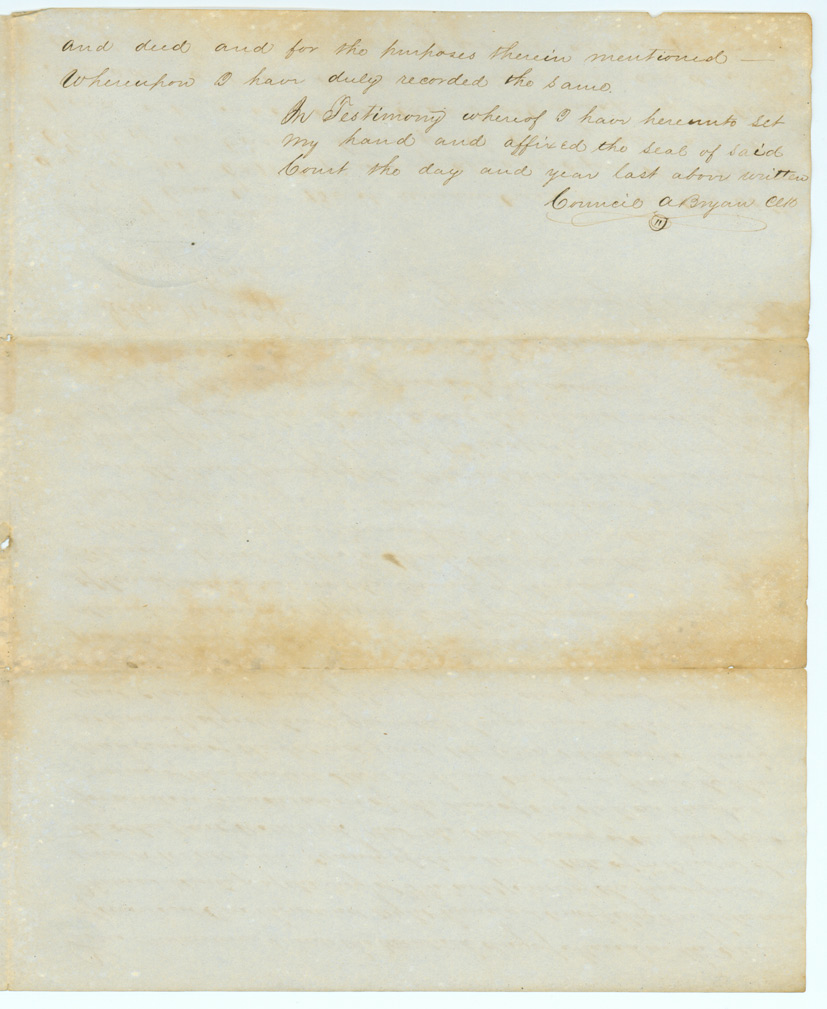 and deed and for the purposes therein mentioned —
Whereupon I have duly recorded the same.
In Testimony whereof I have hereunto set
my hand and affixed the seal of said
Court the day and year last above written
Council A Bryan Clk